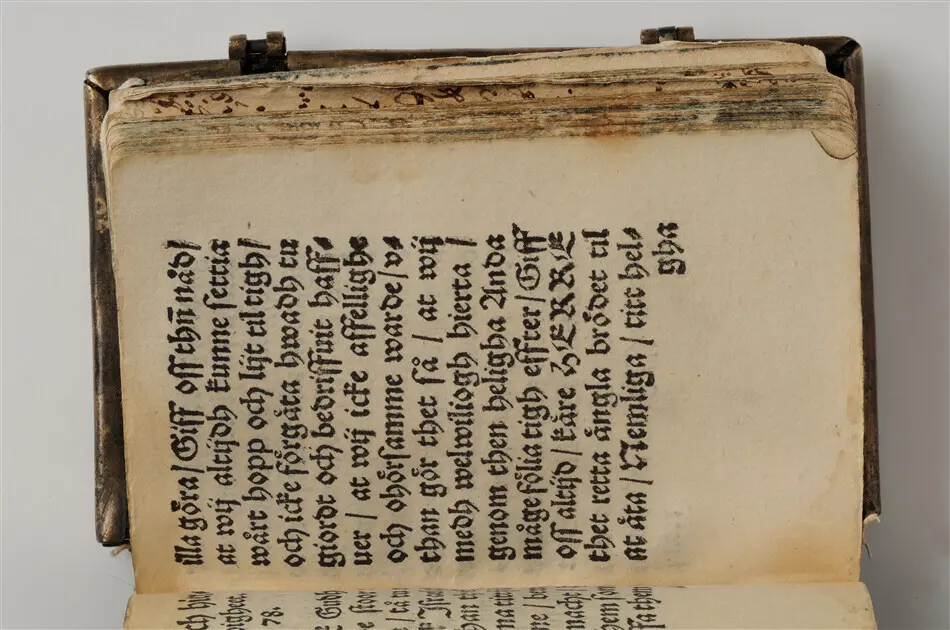 illa göra/Giff oss thn̄ nåd/
at wij altijdh kunne settia
wårt hopp och lijt til tigh/
och icke förgåta hwadh tu
giordt och bedriffuit haff⸗
uer / at wij icke affellighe
och ohörsamme warde/v⸗
than gör thet så / at wij
medh welwillogh hierta /
genom then heligha Anda
måge fölia tigh effter/Giff
oss altijd/ kåre HERRE
thet retta ångla brödet til
at åta/ Nemliga/ titt hel⸗
gha
78.
Gudh